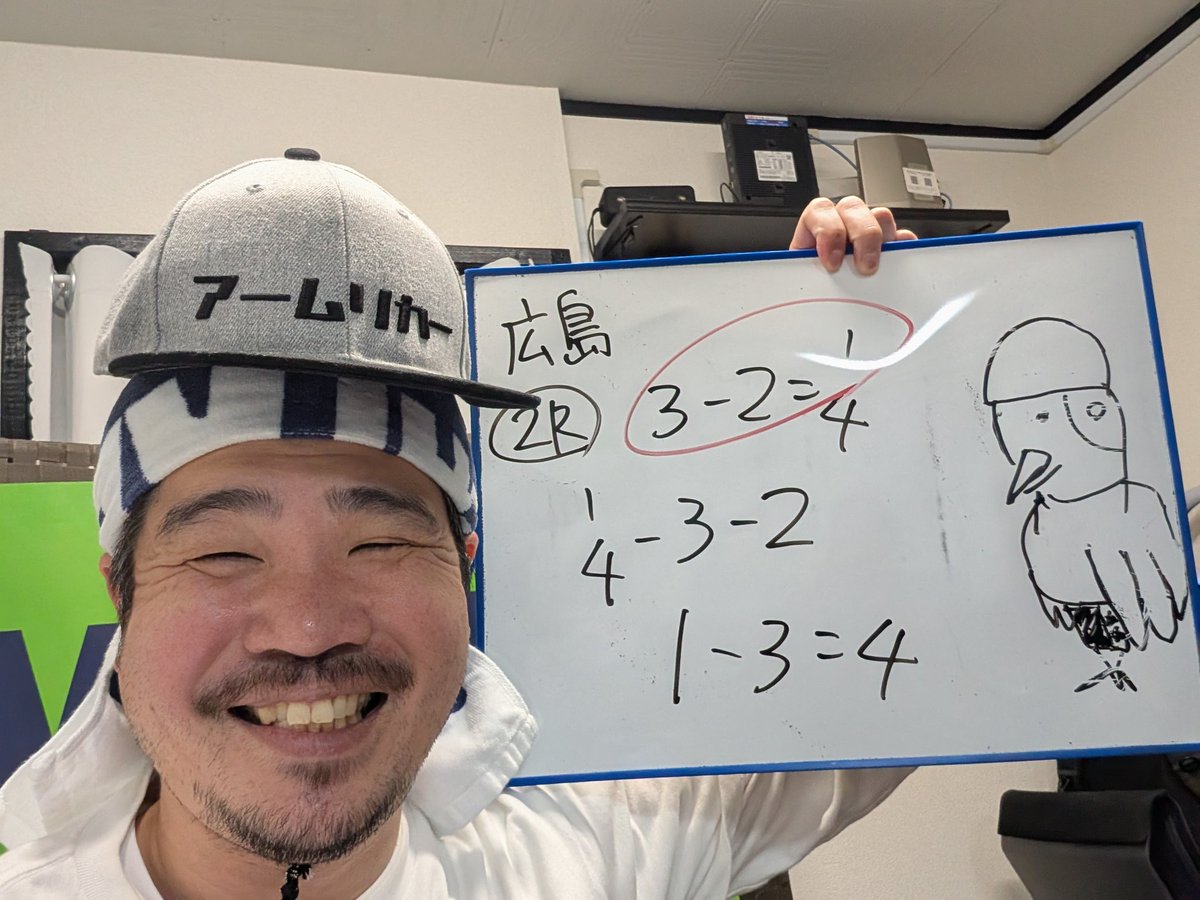 アームリカー
広島
2R
3-2=1
4
1
4-3-2
1-3=4